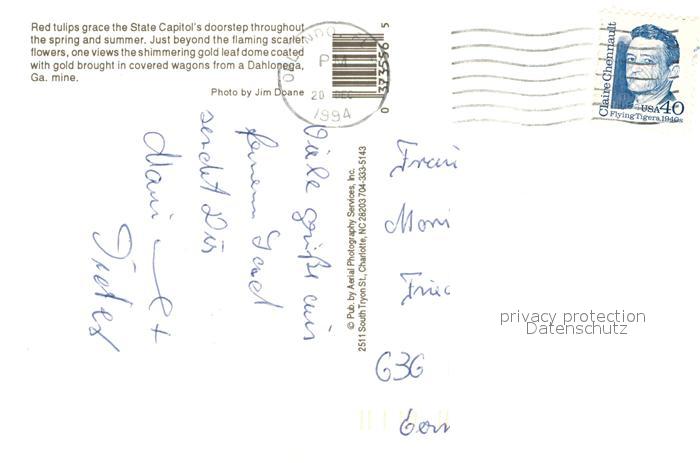 Red tulips grace the State Capitol's doorstep throughout
the spring and summer. Just beyond the flaming scarlet
flowers, one views the shimmering gold leaf dome coated
with gold brought in covered wagons from a Dahlonega,
Ga. mine.
Photo by Jim Doane
PM
20 DEC
1994
0 373556 5
Claire Chennault
USA40
Flying Tigers, 1940s
© Pub. by Aerial Photography Services, Inc.
2511 South Tryon St., Charlotte, NC 28203 704-333-5143
Viele Grüße aus
fernem Land
sendet Dir
privacy protection
Datenschutz